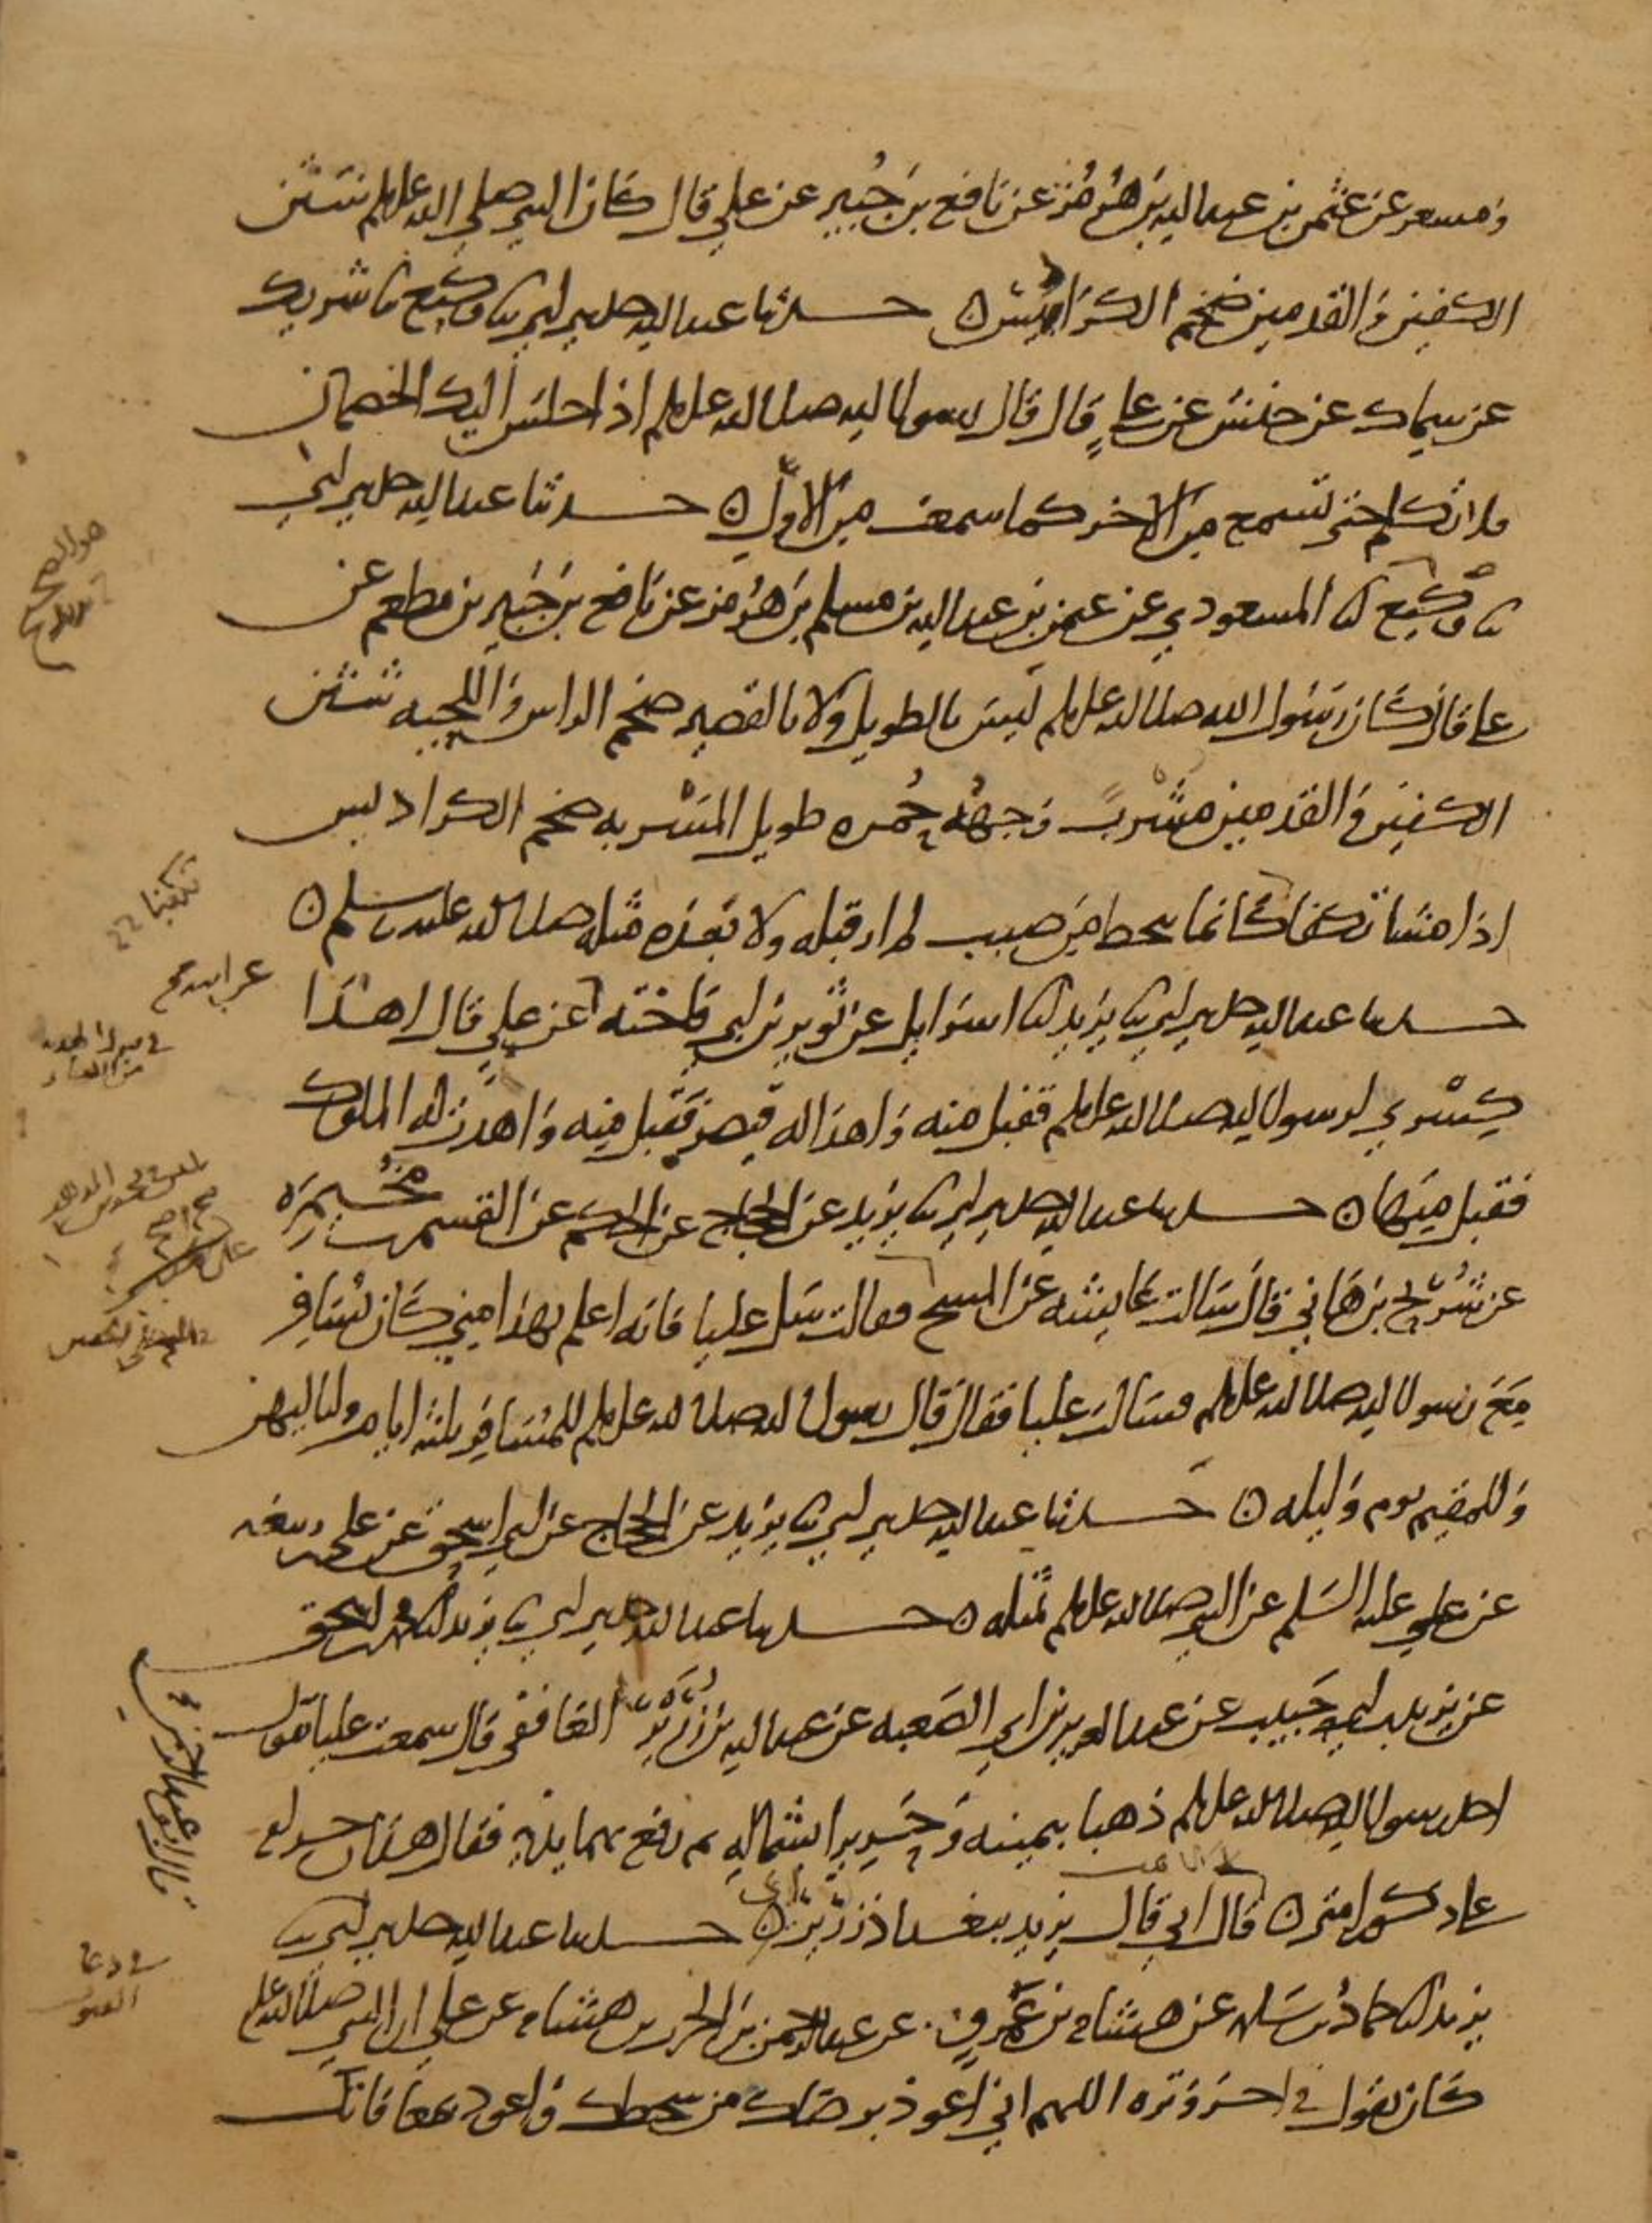 ومسعر عن عثمن بن عبد الله بن هرمز عن نافع بن جبير عن علي قال كان النبي صلى الله عليه وسلم شثن
الكفين والقدمين ضخم الكراديس ○ حدثنا عبد الله حدثني ابي ثنا وكيع ثنا شريك
عن سماك عن حنش عن علي قال قال رسول الله صلى الله عليه وسلم اذا جلس اليك الخصمان
فلا تكلم حتى تسمع من الاخر كما سمعت من الاول ○ حدثنا عبد الله حدثني ابي
ثنا وكيع انا المسعودي عن عثمن بن عبد الله بن مسلم بن هرمز عن نافع بن جبير بن مطعم عن
علي قال كان رسول الله صلى الله عليه وسلم ليس بالطويل ولا بالقصير ضخم الراس واللحيه شثن
الكفين والقدمين مشرب وجهه حمره طويل المسربه ضخم الكراديس
اذا مشا تكفا كانما ينحط من صبب لم ار قبله ولا بعده مثله صلى الله عليه وسلم ○
حدثنا عبد الله حدثني ابي ثنا يزيد انا اسرايل عن ثوير بن ابي فاخته عن علي قال اهدا
كسرى لرسول الله صلى الله عليه وسلم فقبل منه واهدا له قيصر فقبل منه واهدت له الملوك
فقبل منها ○ حدثنا عبد الله حدثني ابي ثنا يزيد عن الحجاج عن الحكم عن القسم بن مخيمره
عن شريح بن هاني قال سالت عايشه عن المسح فقالت سل عليا فانه اعلم بهذا مني كان يسافر
مع رسول الله صلى الله عليه وسلم فسالت عليا فقال قال رسول الله صلى الله عليه وسلم للمسافر ثلثه ايام ولياليهن
وللمقيم يوم وليله ○ حدثنا عبد الله حدثني ابي ثنا يزيد عن الحجاج عن ابي اسحق عن علي بن ربيعه
عن علي عليه السلم عن النبي صلى الله عليه وسلم بمثله ○ حدثنا عبد الله حدثني ابي ثنا يزيد انا محمد بن اسحق
عن يزيد بن ابي حبيب عن عبد العزيز بن ابي الصعبه عن عبد الله بن زرير الغافقي قال سمعت عليا يقول
اخذ رسول الله صلى الله عليه وسلم ذهبا بيمينه وحريرا بشماله ثم رفع بهما يديه فقال هذان حرام على
ذكور امتي ○ قال ابي قال يزيد ببغداذ زرير ○ حدثنا عبد الله حدثني ابي ثنا
يزيد انا حماد بن سلمه عن هشام بن عمرو عن عبد الرحمن بن الحرث بن هشام عن علي ان النبي صلى الله عليه وسلم
كان يقول في اخر وتره اللهم اني اعوذ برضاك من سخطك واعوذ بمعافاتك